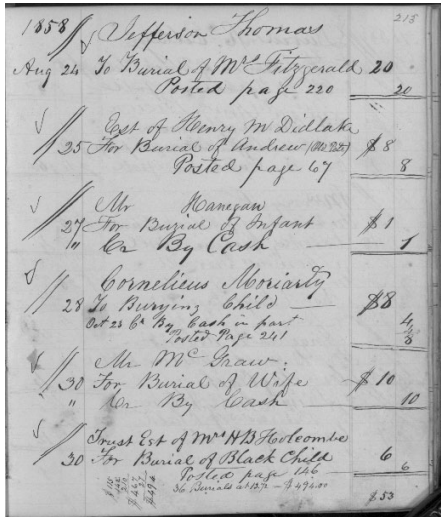 213
1858 Jefferson Thomas
Aug 24 To Burial of Mrs Fitzgerald 20
Posted page 220 20
Est of Henry M Didlake
25 For Burial of Andrew $8
Posted page 67 8
Mr Hanegan
27 For Burial of Infant $1
" Cr By Cash 1
Cornelieus Moriarty
28 To Burying Child $8
Oct 23 Cr By Cash in part 4
Posted Page 241
Mr McGraw.
30 For Burial of Wife $10
" Cr By Cash 10
Trust Est of Mrs H B Holcombe
30 For Burial of Black Child 6
Posted page 146 6
36 Burials at - $494.00
$53